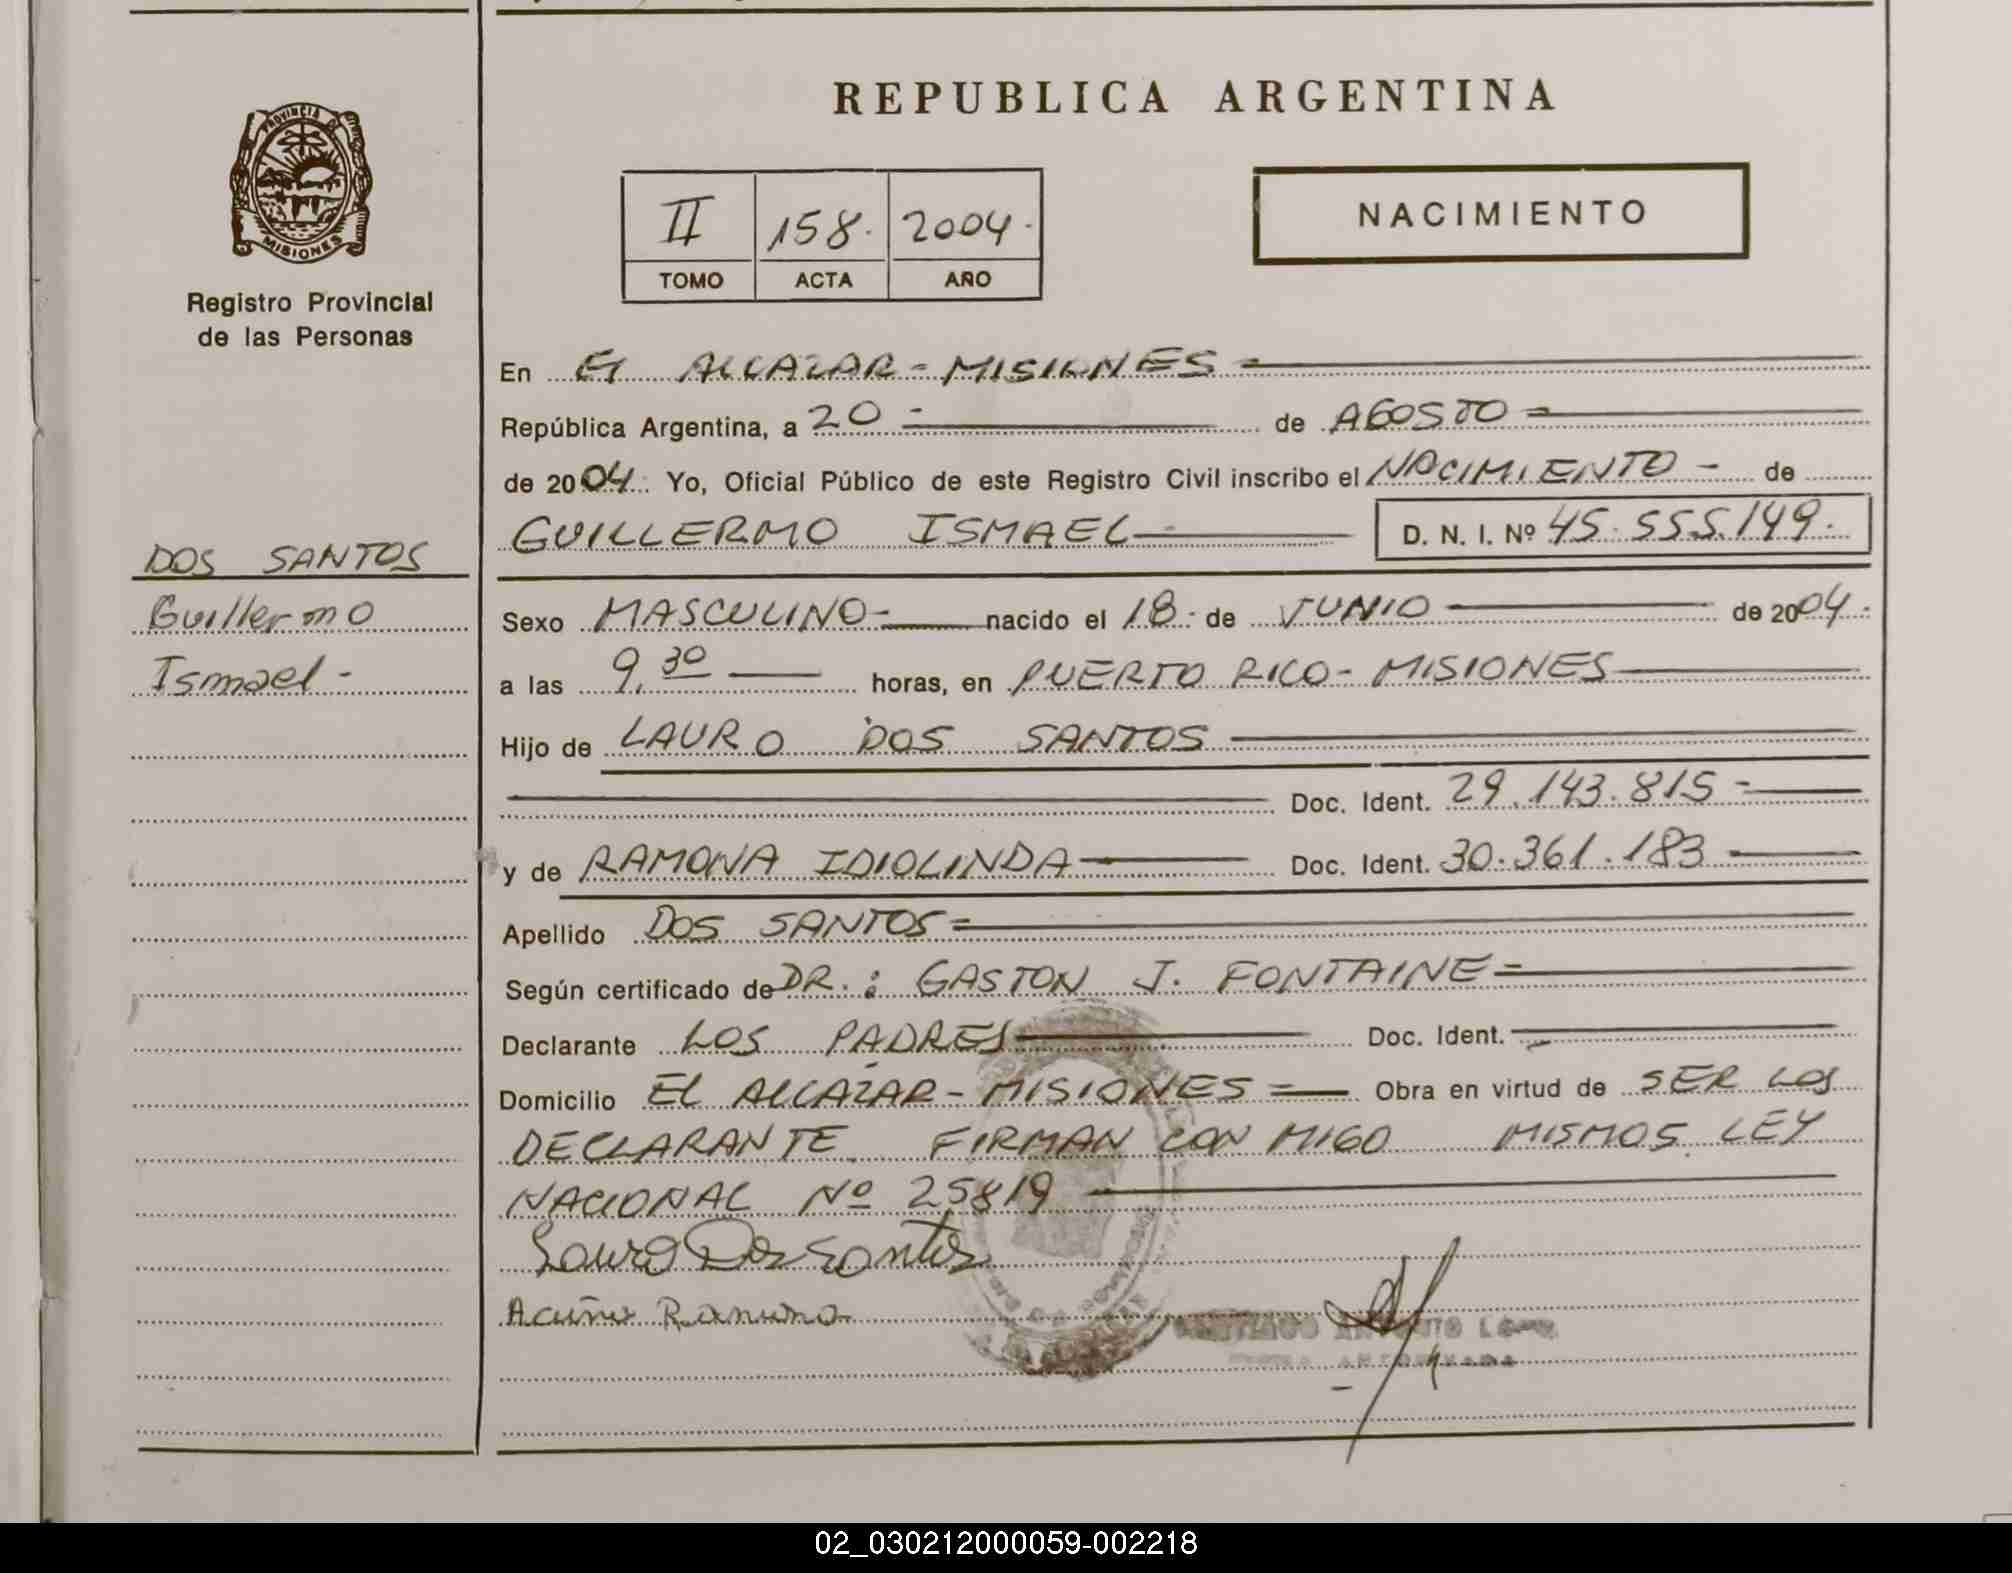 REPUBLICA ARGENTINA
PROVINCIA DE
MISIONES
Registro Provincial
de las Personas
II 158. 2004.
TOMO ACTA AÑO
NACIMIENTO
En El ALCAZAR - MISIONES =
República Argentina, a 20 - de AGOSTO =
de 2004. Yo, Oficial Público de este Registro Civil inscribo el NACIMIENTO - de
GUILLERMO ISMAEL D. N. I. Nº 45.555.149.
DOS SANTOS
Guillermo
Ismael -
Sexo MASCULINO - nacido el 18 - de JUNIO de 2004.
a las 9,30 horas, en PUERTO RICO - MISIONES
Hijo de LAURO DOS SANTOS
Doc. Ident. 29.143.815 -
y de RAMONA IDIOLINDA Doc. Ident. 30.361.183
Apellido DOS SANTOS =
Según certificado de DR.: GASTON J. FONTAINE =
Declarante LOS PADRES Doc. Ident.
Domicilio EL ALCAZAR - MISIONES = Obra en virtud de SER LOS
DECLARANTE FIRMAN CON MIGO MISMOS LEY
NACIONAL Nº 25819
Lauro Dos Santos
Acuña Ramona
02_030212000059-002218